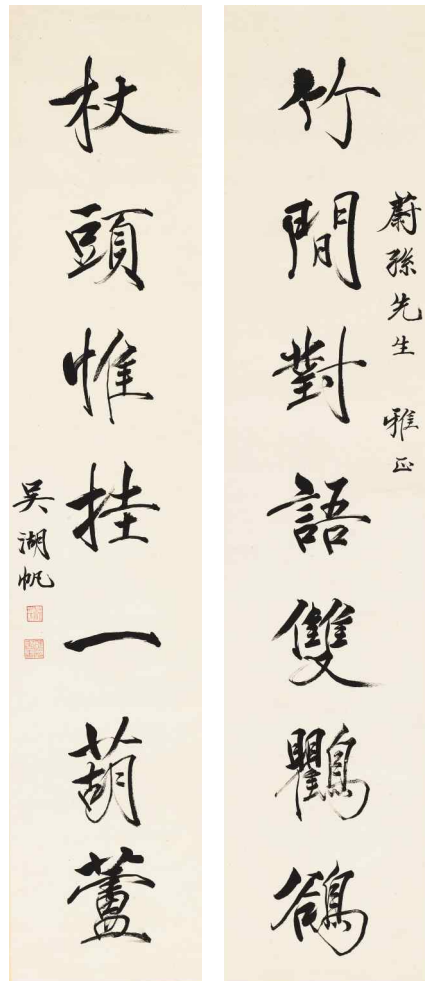 竹間對語雙鸜鵒
蔚孫先生 雅正
杖頭惟挂一葫蘆
吳湖帆